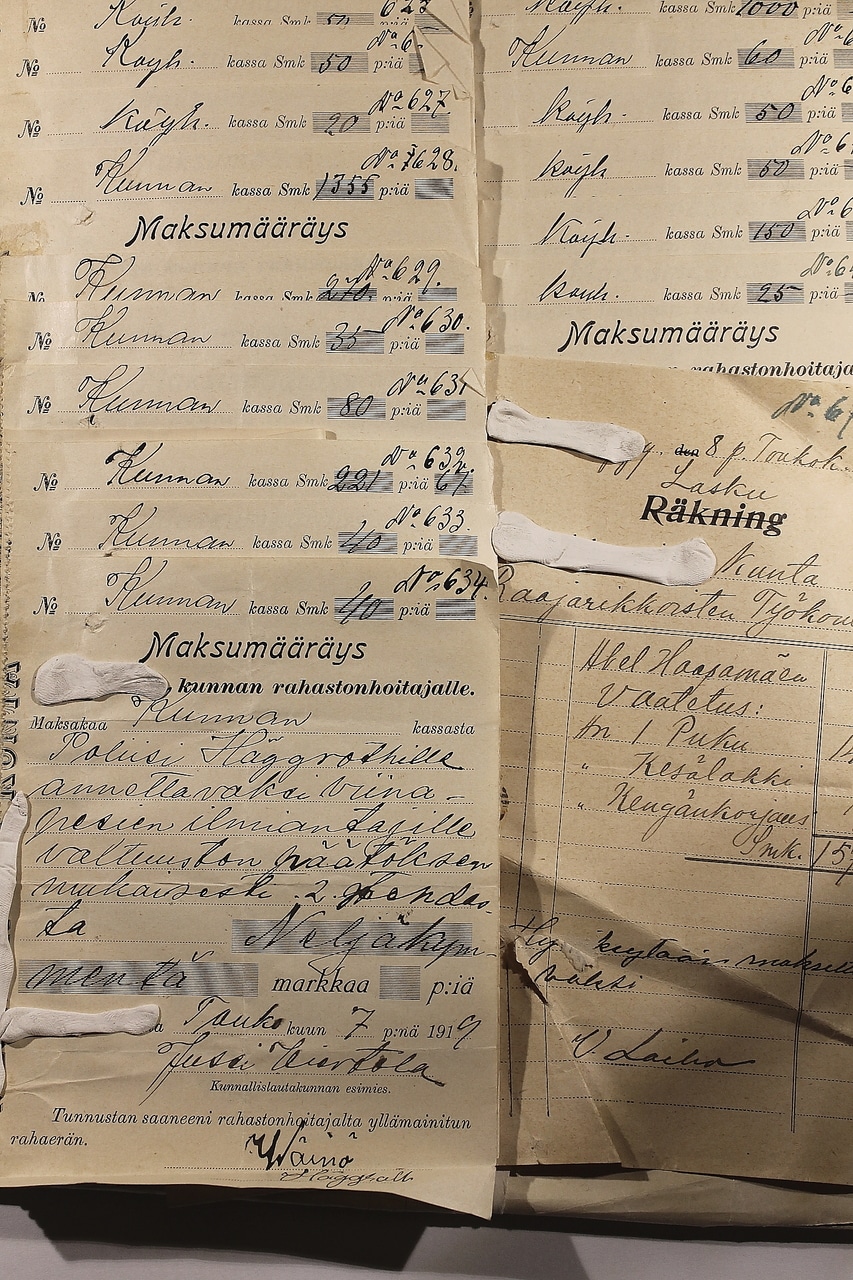 № Köyh. kassa Smk 50 623
№ Köyh. kassa Smk 50 p:iä № 6
№ Köyh. kassa Smk 20 p:iä № 627.
№ Kunnan kassa Smk 1355 p:iä № 628.
Maksumääräys
№ Kunnan kassa Smk p:iä № 629.
№ Kunnan kassa Smk 35 p:iä № 630.
№ Kunnan kassa Smk 80 p:iä № 631
№ Kunnan kassa Smk 221 p:iä 67 № 632.
№ Kunnan kassa Smk 40 p:iä № 633.
№ Kunnan kassa Smk 40 p:iä № 634.
Maksumääräys
kunnan rahastonhoitajalle.
Maksakaa Kunnan kassasta
Poliisi Häggrothille
annettavaksi viina-
pesien ilmiantajille
valtuuston päätöksen
mukaisesti. 2.
ta Neljäkym-
mentä markkaa p:iä
Touko kuun 7 p:nä 1919
Jussi
Kunnallislautakunnan esimies.
Tunnustan saaneeni rahastonhoitajalta yllämainitun
rahaerän.
Wäinö
Häggroth
KUNTA
Köyh. kassa Smk 1000 p:iä
Kunnan kassa Smk 60 p:iä № 6
Köyh. kassa Smk 50 p:iä № 6
Köyh. kassa Smk 50 p:iä № 6
Köyh. kassa Smk 150 p:iä № 6
Köyh. kassa Smk 25 p:iä № 6
Maksumääräys
rahastonhoitaja
№ 6
den 8 p. Toukok.
Lasku
Räkning
Kunta
Raajarikkoisten Työhuo
Abel Haapamäen
Vaatetus:
1 Puku
" Kesälakki
" Kengänkorjaus
Smk. 15
Hy. maksett
V. Laiho